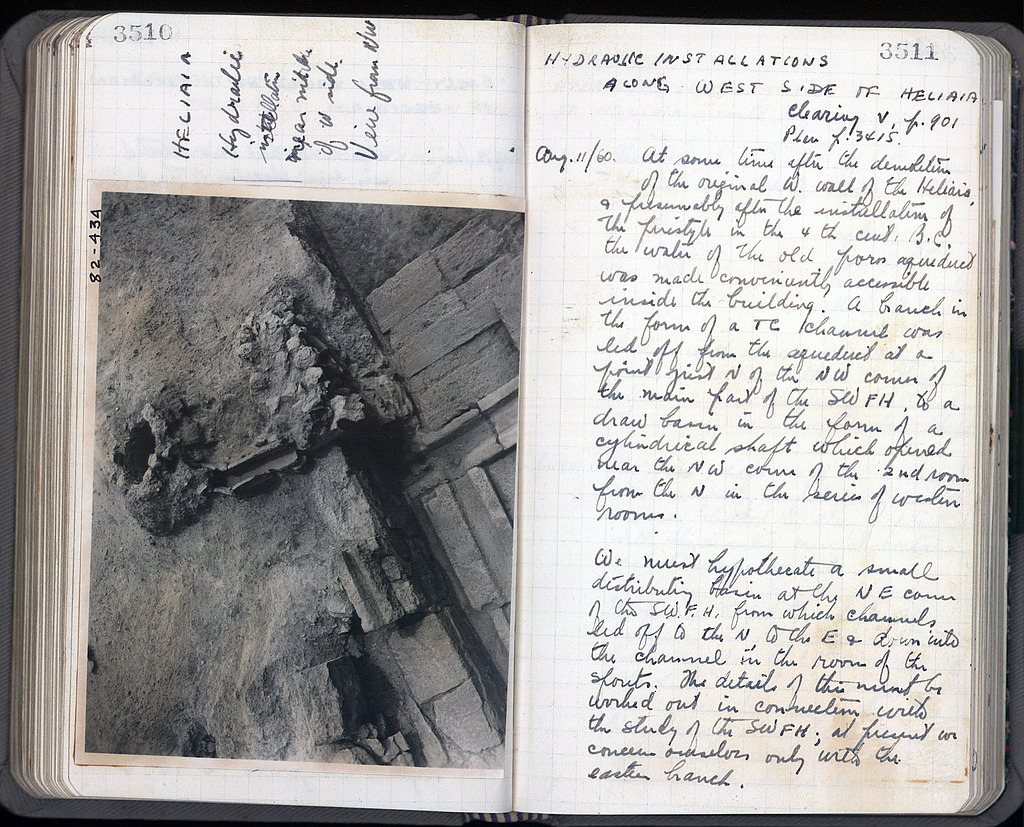 3510
HELIAIA
Hydraulic
installation
near middle
of W side.
View from NW
82-434
3511
HYDRAULIC INSTALLATIONS
ALONG WEST SIDE OF HELIAIA
Clearing V, p. 901
Plan p. 3415.
Aug. 11/60. At some time after the demolition
of the original W. wall of the Heliaia,
& presumably after the installation of
the peristyle in the 4th cent. B.C.
the water of the old poros aqueduct
was made conveniently accessible
inside the building. A branch in
the form of a TC channel was
led off from the aqueduct at a
point just N of the NW corner of
the main part of the SWFH, to a
draw basin in the form of a
cylindrical shaft which opened
near the NW corner of the 2nd room
from the N in the series of western
rooms.
We must hypothecate a small
distributing basin at the NE corner
of the SWFH, from which channels
led off to the N, to the E & down into
the channel in the room of the
spouts. The details of this must be
worked out in connection with
the study of the SWFH; at present we
concern ourselves only with the
eastern branch.